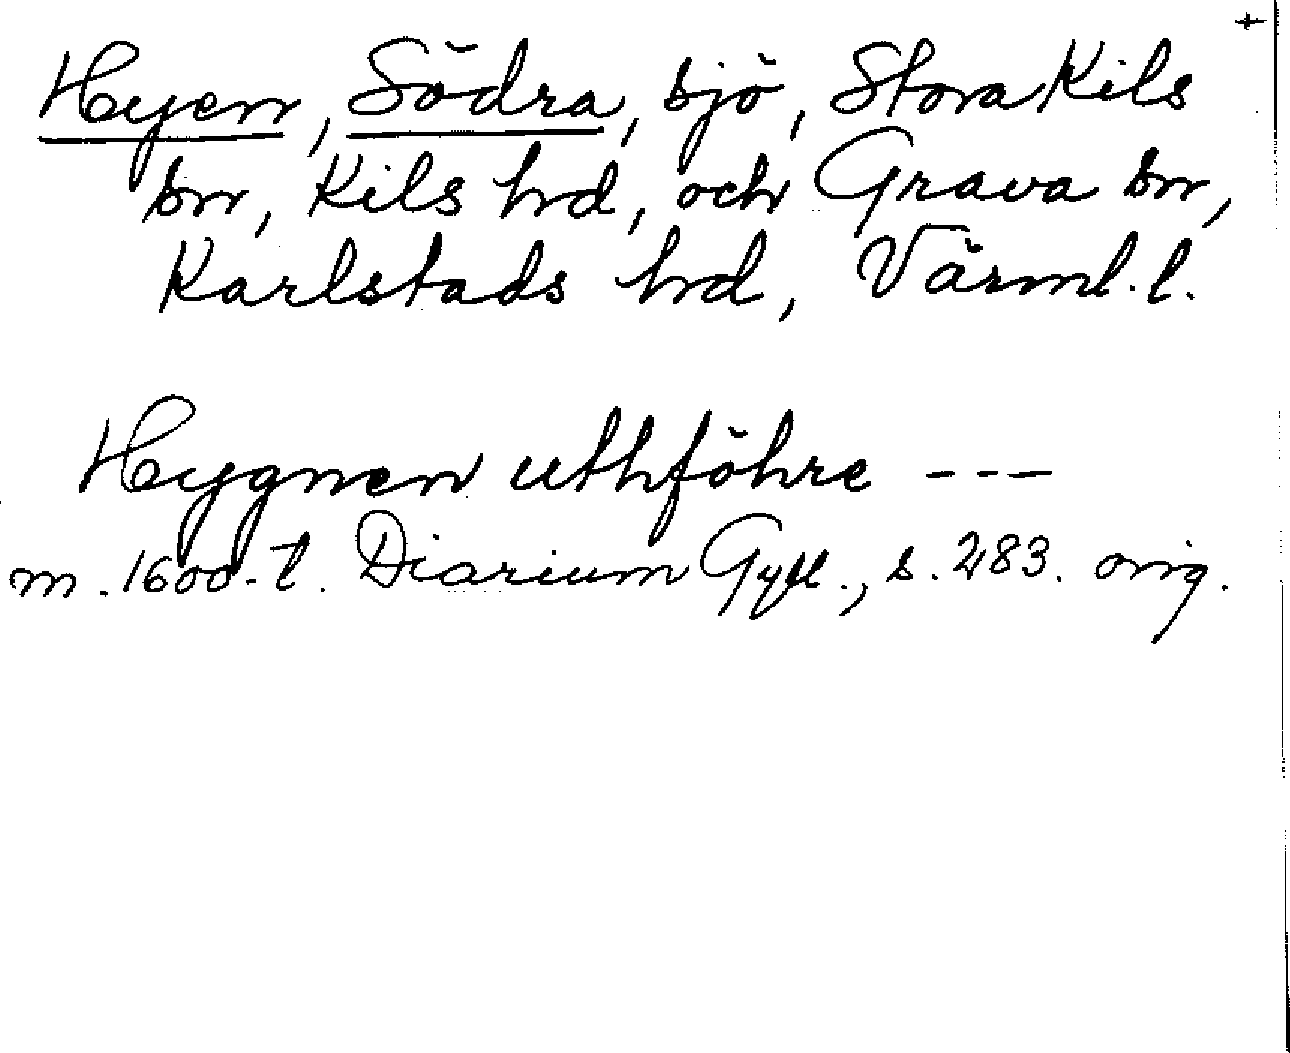 +
Hyen, Södra, sjö, Stora Kils
sn, Kils hd, och Grava sn,
Karlstads hd, Värml. l.
Hygnen uthföhre ---
m. 1600-t. Diarium Gyll., s. 283. orig.